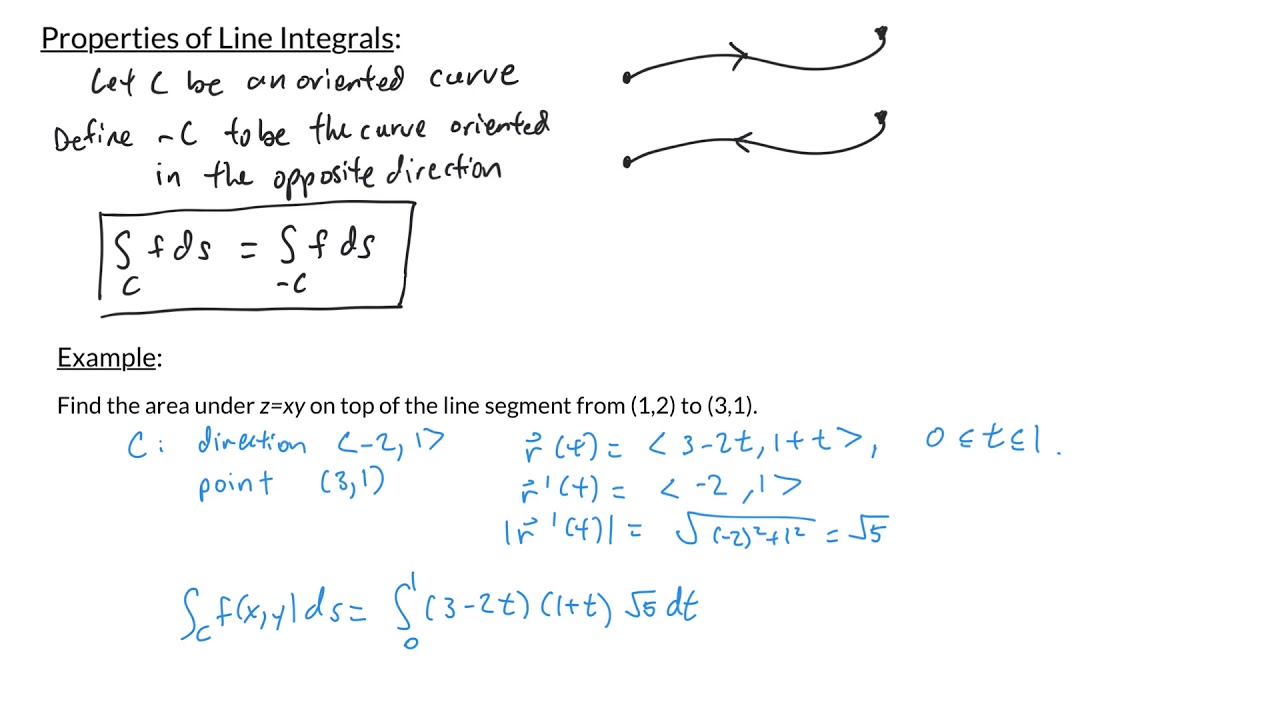 Properties of Line Integrals:
Let C be an oriented curve
Define -C to be the curve oriented
in the opposite direction
∫_C f ds = ∫_-C f ds
Example:
Find the area under z=xy on top of the line segment from (1,2) to (3,1).
C: direction <-2,1>
point (3,1)
r⃗(t) = <3-2t, 1+t>, 0≤t≤1.
r⃗'(t) = <-2,1>
|r⃗'(t)| = √((-2)²+1²) = √5
∫_C f(x,y)ds = ∫_0^1 (3-2t)(1+t) √5 dt